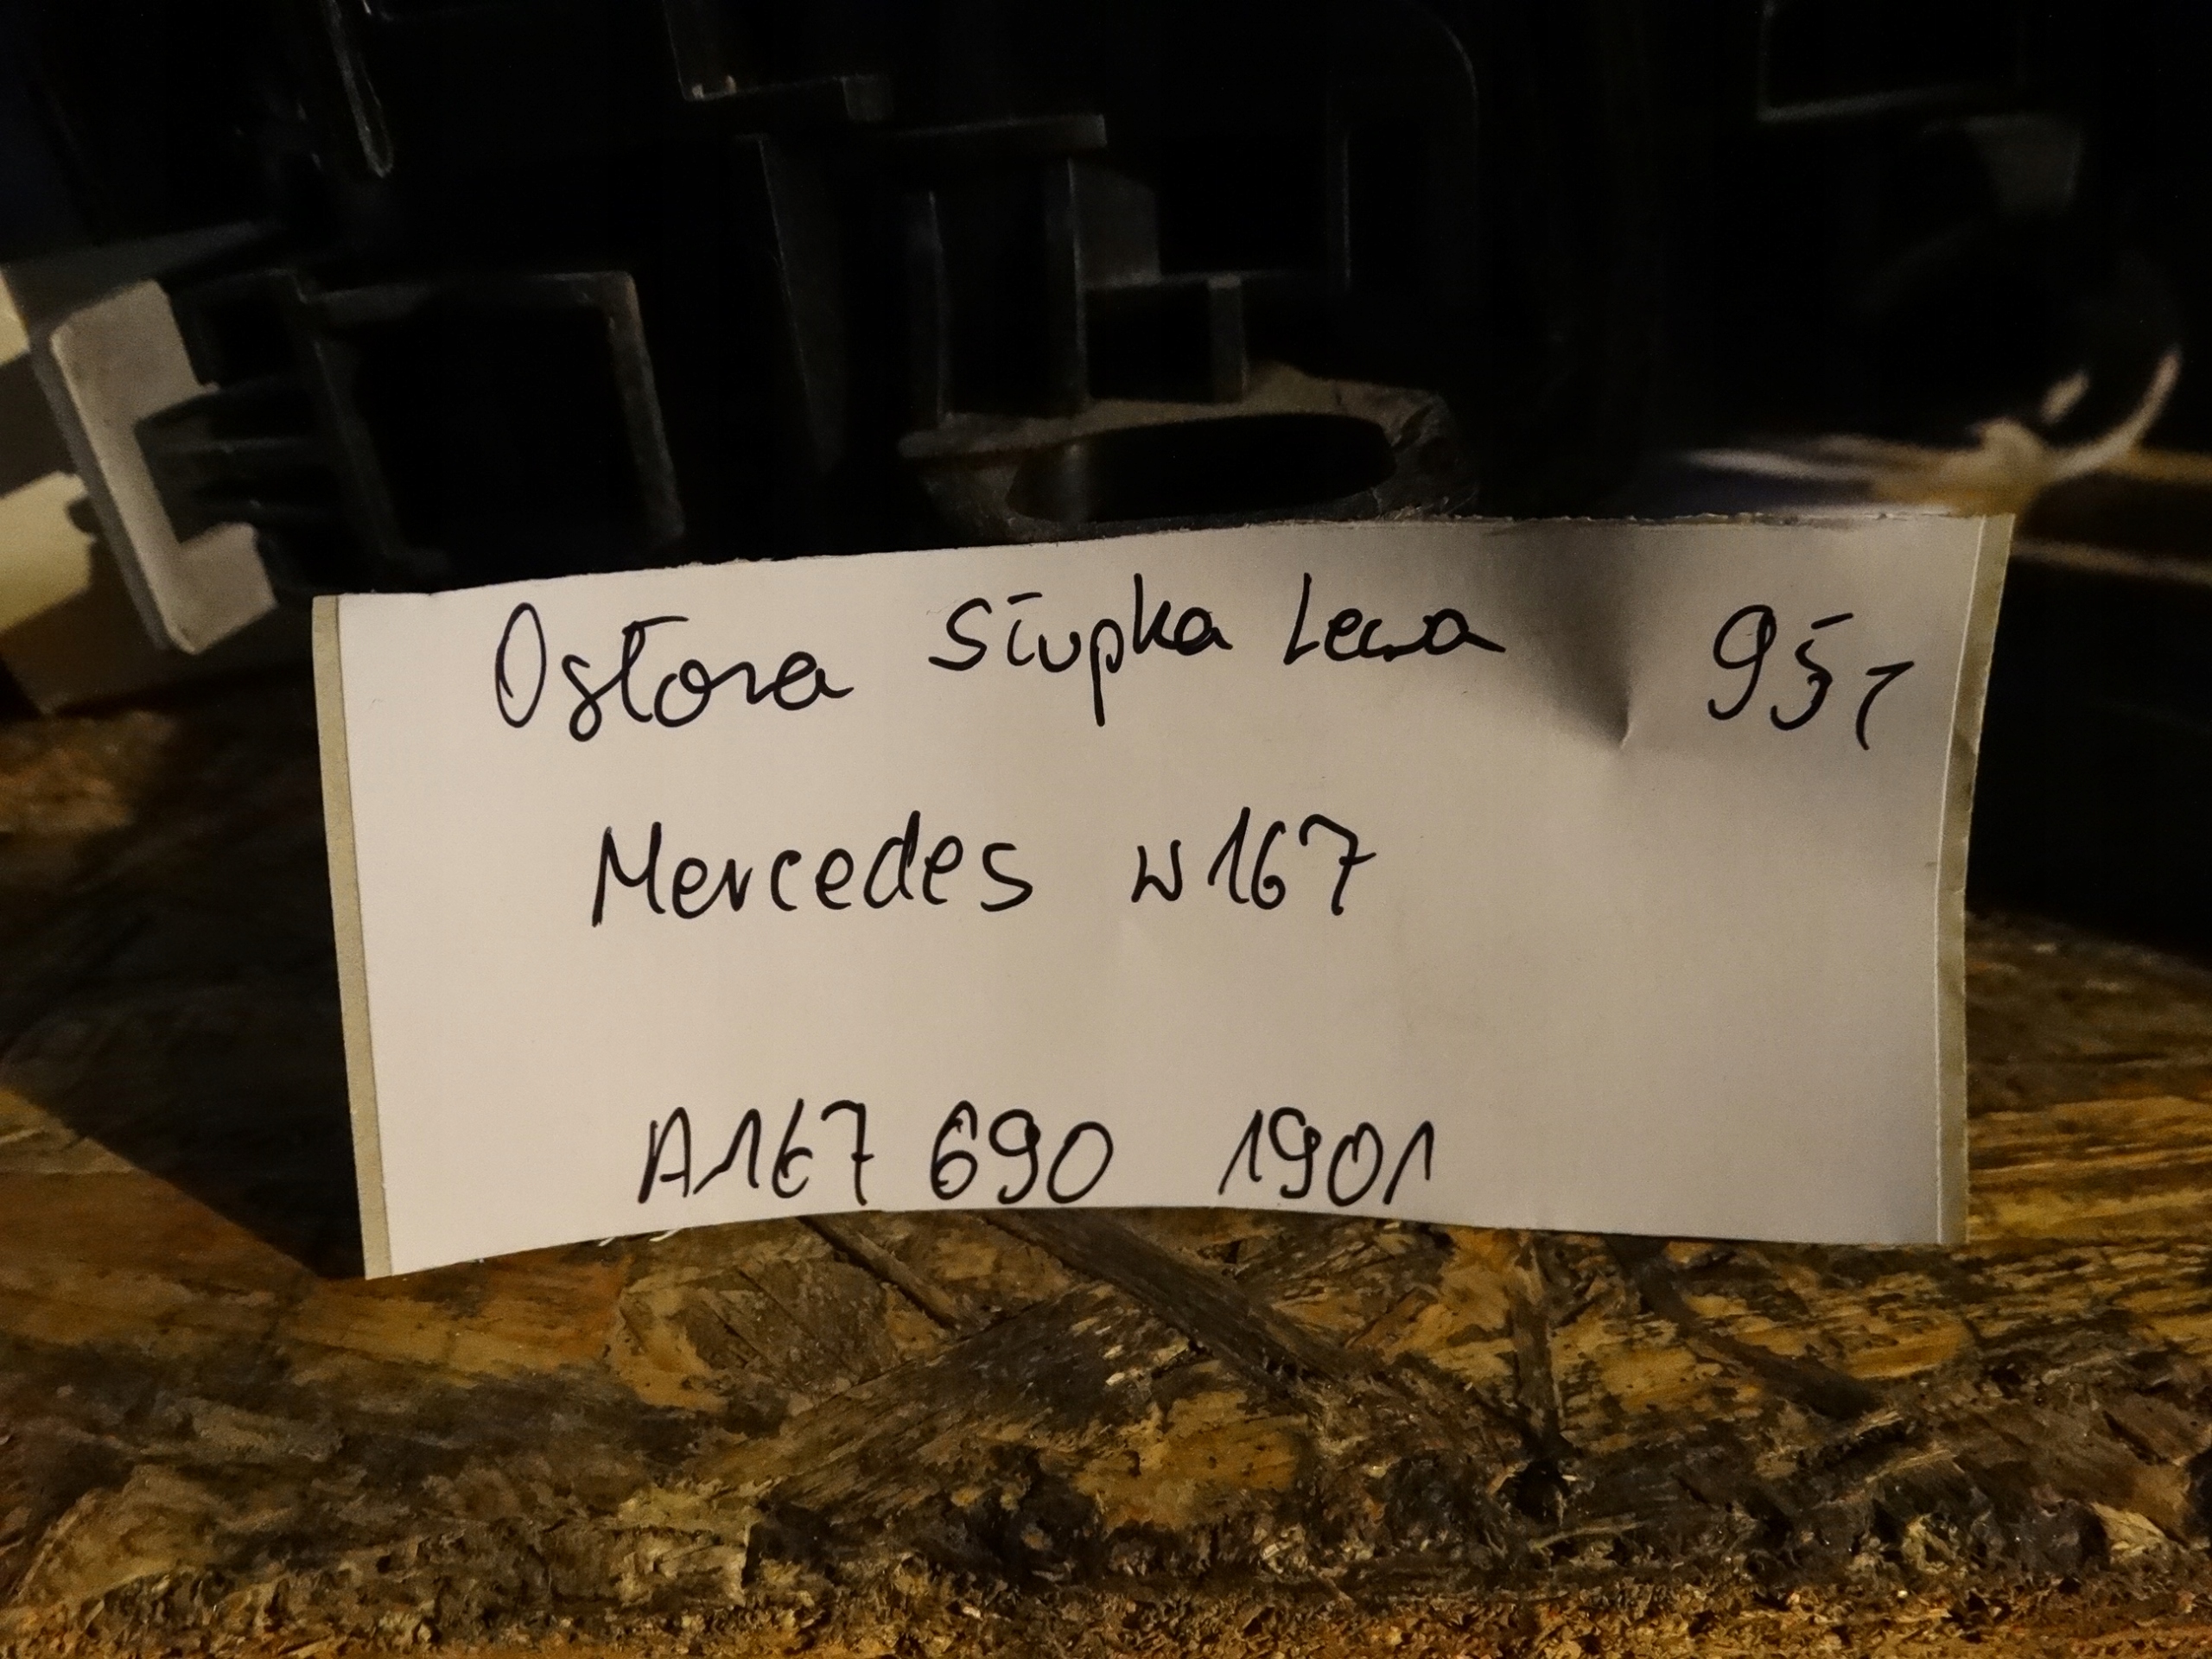 Osłona słupka Lewa 951
Mercedes w167
A167 690 1901